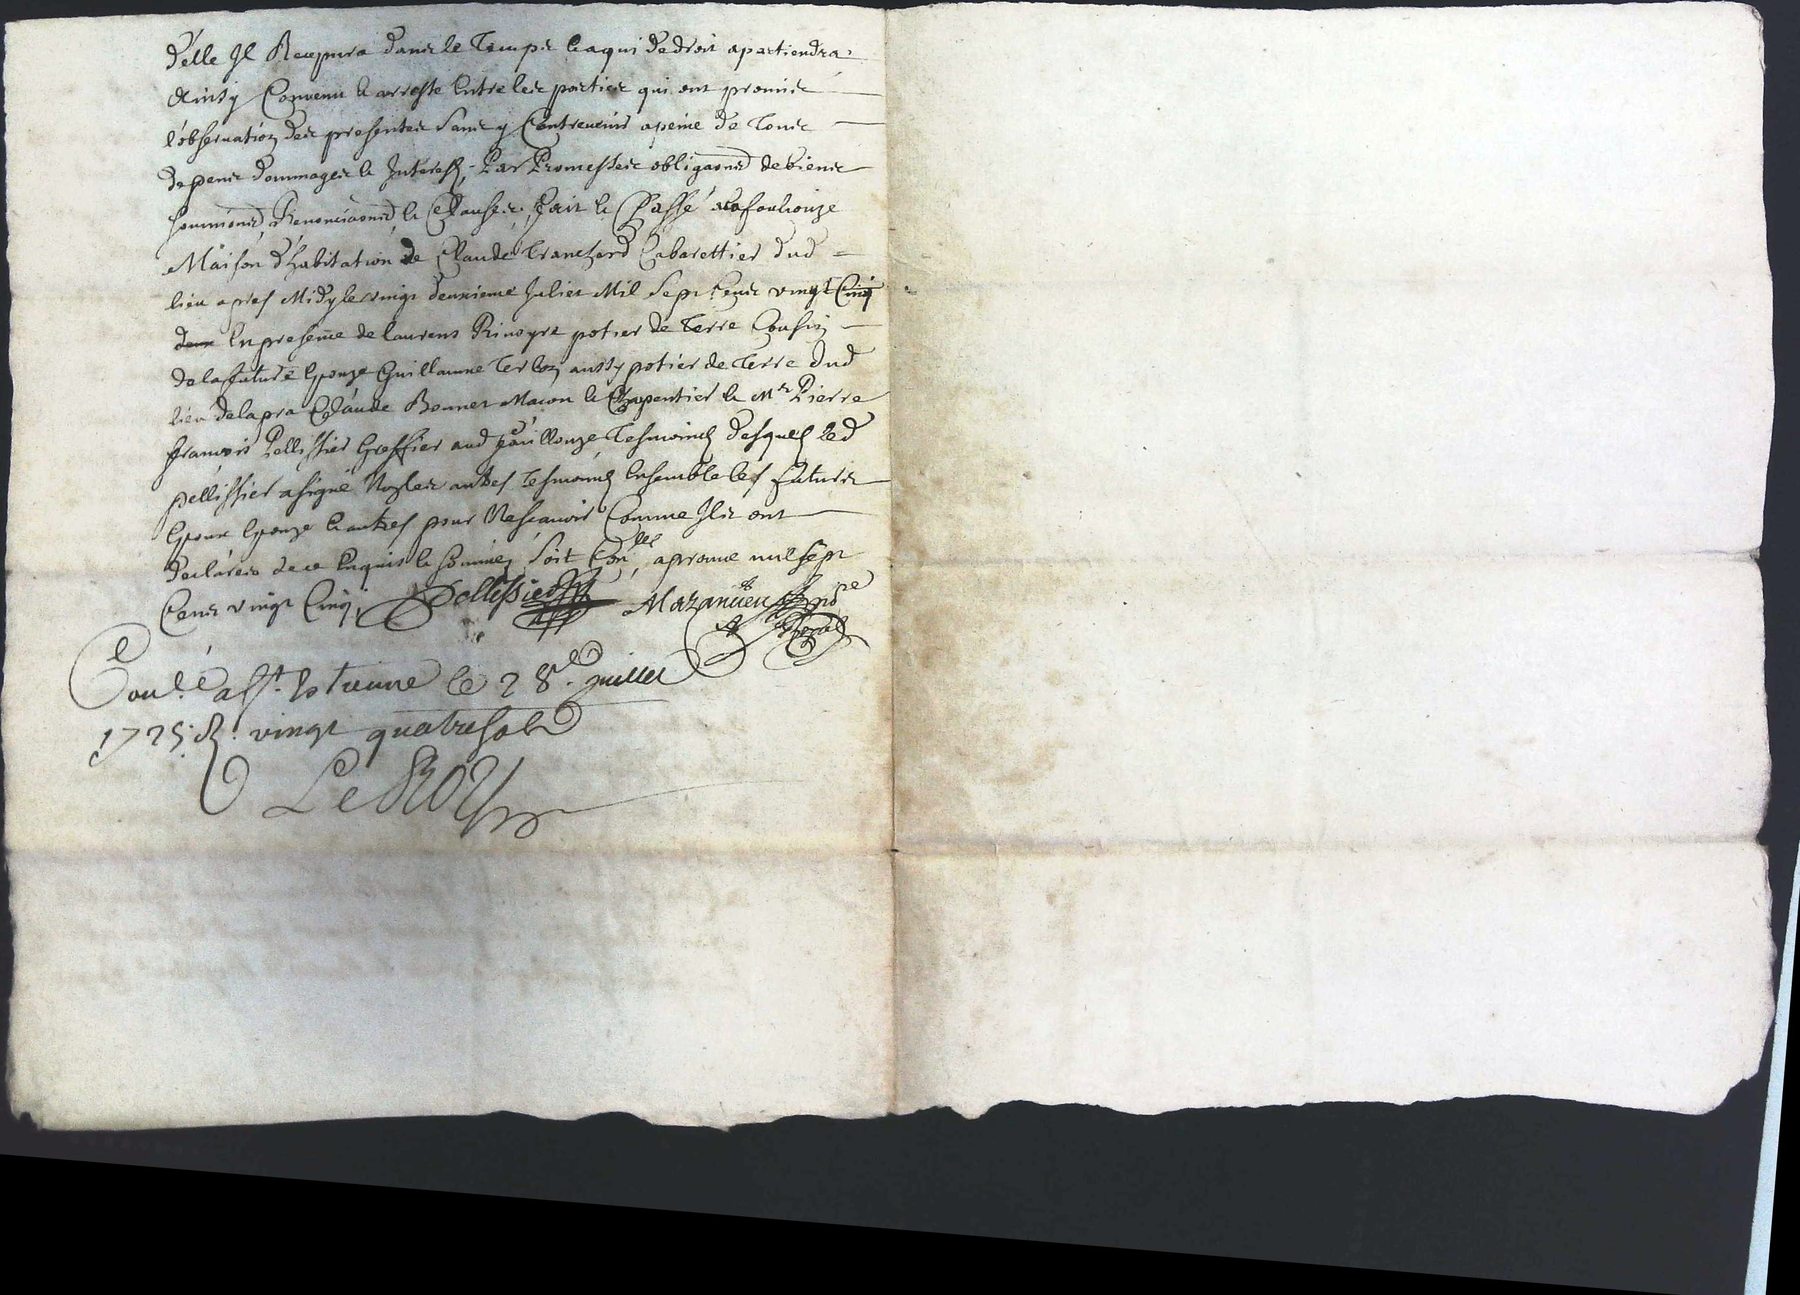 d'elle Jl Recepvra dans le Temps et a qui de droit apartiendra
Ainsy Convenu et arresté Entre les parties qui ont promis
l'observation des presentes sans y Contrevenir a peine de Tous
depens dommages et Interest, Par Promesses obligaons de biens
soumions, Renonciaons, et Clauses, fait et Passé a la fouliouze
Maison d'habitation de Claude Cabarettier dud
lieu apres Midy le vingt deuxieme Juliet Mil Sept Cens vingt Cinq
deux En presence de laurens potier de Terre Cousin
de la future Epouze Guillaume aussy potier de Terre dud
lieu de la pra Claude Bonnet Macon et Charpentier et Mr Pierre
francois Pellissier Greffier aud Tesmoins desquels led
pellissier a signé Non les autres Tesmoins Ensemble les futurs
Epoux Epouze et autres pour Ne scavoir Comme Ils ont
declarés de ce Enquis et sommez, soit Conlé, aprouvé mil sept
Cens vingt Cinq, Pellissier Mazancieu Nore
Royal
Conlé a St Estienne le 28e juillet
1725. R. vingt quatre sols
Le Roy